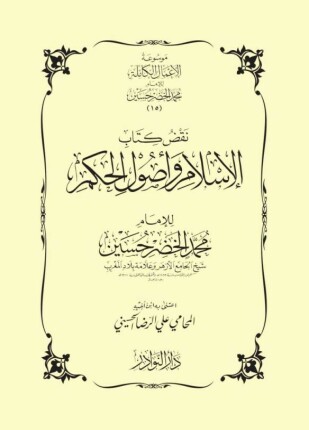 موسوعة
الأعمال الكاملة
للإمام
محمد الخضر حسين
(١٥)
نقض كتاب
الإسلام وأصول الحكم
للإمام
محمد الخضر حسين
شيخ الجامع الأزهر وعلامة بلاد المغرب
اعتنى به ابن أخيه
المحامي علي الرضا الحسيني
دار النوادر